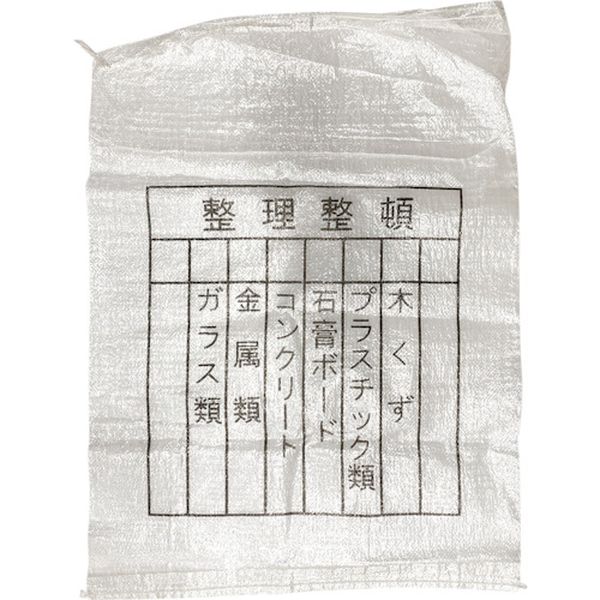 整理整頓
木くず
プラスチック類
石膏ボード
コンクリート
金属類
ガラス類